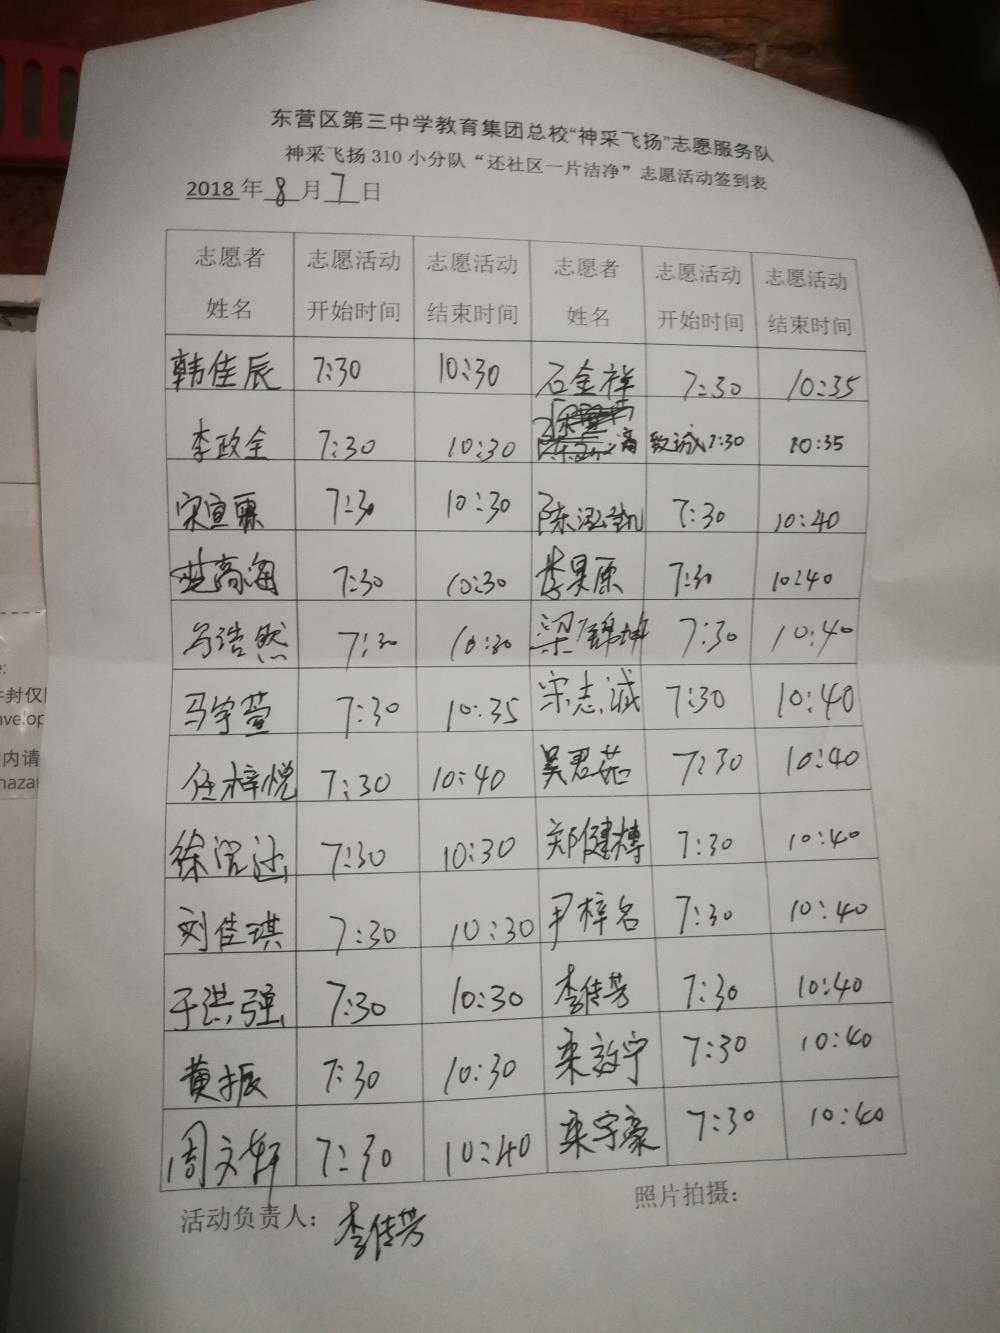 东营区第三中学教育集团总校“神采飞扬”志愿服务队
神采飞扬 310 小分队“还社区一片洁净”志愿活动签到表
2018 年 8 月 7 日
志愿者 志愿活动 志愿活动 志愿者 志愿活动 志愿活动
姓名 开始时间 结束时间 姓名 开始时间 结束时间
韩佳辰 7:30 10:30 石金祥 7:30 10:35
李政全 7:30 10:30 致诚 7:30 10:35
宋宣霖 7:30 10:30 陈泓凯 7:30 10:40
7:30 10:30 李果原 7:30 10:40
浩然 7:30 10:30 梁锦坤 7:30 10:40
马宇萱 7:30 10:35 宋志诚 7:30 10:40
任梓悦 7:30 10:40 吴君茹 7:30 10:40
徐 7:30 10:30 郑健樽 7:30 10:40
刘佳琪 7:30 10:30 尹梓名 7:30 10:40
于洪强 7:30 10:30 李传芳 7:30 10:40
黄振 7:30 10:30 栾效宁 7:30 10:40
周文轩 7:30 10:40 栾宇豪 7:30 10:40
活动负责人： 李传芳 照片拍摄：
封仅
nvelop
内请
nazar